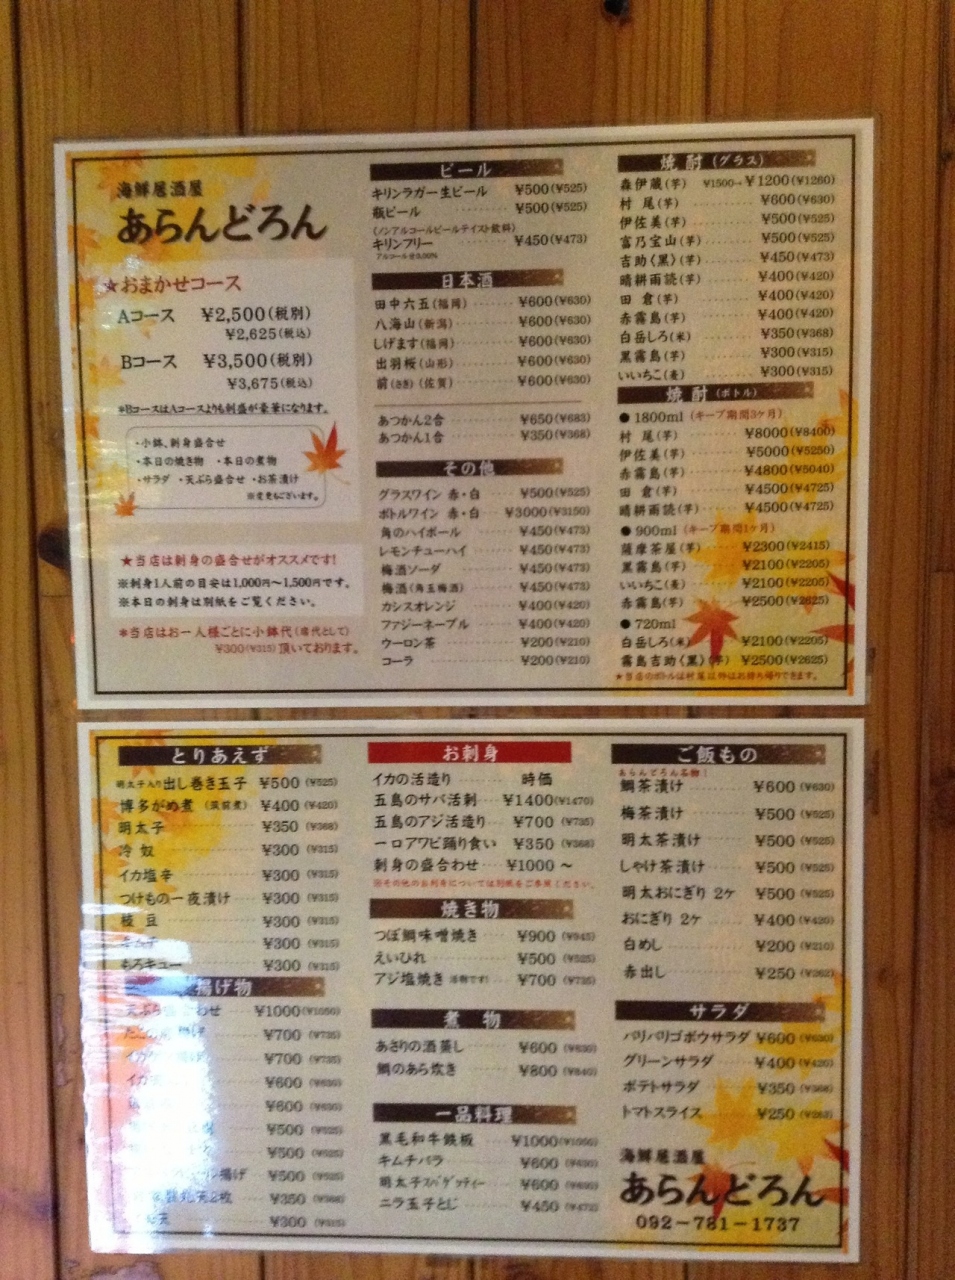 海鮮居酒屋
あらんどろん
★おまかせコース
Aコース ¥2,500(税別)
¥2,625(税込)
Bコース ¥3,500(税別)
¥3,675(税込)
*BコースはAコースよりも刺盛が豪華になります。
・小鉢、刺身盛合せ
・本日の焼き物 ・本日の煮物
・サラダ ・天ぷら盛合せ ・お茶漬け
※変更もございます。
★当店は刺身の盛合せがオススメです!
※刺身1人前の目安は1,000円〜1,500円です。
※本日の刺身は別紙をご覧ください。
*当店はお一人様ごとに小鉢代(席代として)
¥300(¥315)頂いております。
ビール
キリンラガー生ビール ¥500(¥525)
瓶ビール ¥500(¥525)
(ノンアルコールビールテイスト飲料)
キリンフリー ¥450(¥473)
アルコール分0.00%
日本酒
田中六五(福岡) ¥600(¥630)
八海山(新潟) ¥600(¥630)
しげます(福岡) ¥600(¥630)
出羽桜(山形) ¥600(¥630)
前(さき)(佐賀) ¥600(¥630)
あつかん2合 ¥650(¥683)
あつかん1合 ¥350(¥368)
その他
グラスワイン 赤・白 ¥500(¥525)
ボトルワイン 赤・白 ¥3000(¥3150)
角のハイボール ¥450(¥473)
レモンチューハイ ¥450(¥473)
梅酒ソーダ ¥450(¥473)
梅酒(角玉梅酒) ¥450(¥473)
カシスオレンジ ¥400(¥420)
ファジーネーブル ¥400(¥420)
ウーロン茶 ¥200(¥210)
コーラ ¥200(¥210)
焼酎(グラス)
森伊蔵(芋) ¥1500→¥1200(¥1260)
村尾(芋) ¥600(¥630)
伊佐美(芋) ¥500(¥525)
富乃宝山(芋) ¥500(¥525)
吉助〈黒〉(芋) ¥450(¥473)
晴耕雨読(芋) ¥400(¥420)
田倉(芋) ¥400(¥420)
赤霧島(芋) ¥400(¥420)
白岳しろ(米) ¥350(¥368)
黒霧島(芋) ¥300(¥315)
いいちこ(麦) ¥300(¥315)
焼酎(ボトル)
●1800ml(キープ期間3ヶ月)
村尾(芋) ¥8000(¥8400)
伊佐美(芋) ¥5000(¥5250)
赤霧島(芋) ¥4800(¥5040)
田倉(芋) ¥4500(¥4725)
晴耕雨読(芋) ¥4500(¥4725)
●900ml(キープ期間1ヶ月)
薩摩茶屋(芋) ¥2300(¥2415)
黒霧島(芋) ¥2100(¥2205)
いいちこ(麦) ¥2100(¥2205)
赤霧島(芋) ¥2500(¥2625)
●720ml
白岳しろ(米) ¥2100(¥2205)
霧島吉助〈黒〉(芋) ¥2500(¥2625)
★当店のボトルは村尾以外はお持ち帰りできます。
とりあえず
明太子入り出し巻き玉子 ¥500(¥525)
博多がめ煮(筑前煮) ¥400(¥420)
明太子 ¥350(¥368)
冷奴 ¥300(¥315)
イカ塩辛 ¥300(¥315)
つけもの一夜漬け ¥300(¥315)
枝豆 ¥300(¥315)
キムチ ¥300(¥315)
もろキュー ¥300(¥315)
揚げ物
天ぷら盛合わせ ¥1000(¥1050)
¥700(¥735)
¥700(¥735)
¥600(¥630)
¥600(¥630)
¥500(¥525)
¥500(¥525)
揚げ ¥500(¥525)
天2枚 ¥350(¥368)
¥300(¥315)
お刺身
イカの活造り 時価
五島のサバ活刺 ¥1400(¥1470)
五島のアジ活造り ¥700(¥735)
一口アワビ踊り食い ¥350(¥368)
刺身の盛合わせ ¥1000〜
※その他のお刺身については別紙をご参照ください。
焼き物
つぼ鯛味噌焼き ¥900(¥945)
えいひれ ¥500(¥525)
アジ塩焼き 活物です! ¥700(¥735)
煮物
あさりの酒蒸し ¥600(¥630)
鯛のあら炊き ¥800(¥840)
一品料理
黒毛和牛鉄板 ¥1000(¥1050)
キムチバラ ¥600(¥630)
明太子スパゲッティー ¥600(¥630)
ニラ玉子とじ ¥450(¥473)
ご飯もの
あらんどろん名物!
鯛茶漬け ¥600(¥630)
梅茶漬け ¥500(¥525)
明太茶漬け ¥500(¥525)
しゃけ茶漬け ¥500(¥525)
明太おにぎり 2ケ ¥500(¥525)
おにぎり 2ケ ¥400(¥420)
白めし ¥200(¥210)
赤出し ¥250(¥263)
サラダ
パリパリゴボウサラダ ¥600(¥630)
グリーンサラダ ¥400(¥420)
ポテトサラダ ¥350(¥368)
トマトスライス ¥250(¥263)
海鮮居酒屋
あらんどろん
092-781-1737